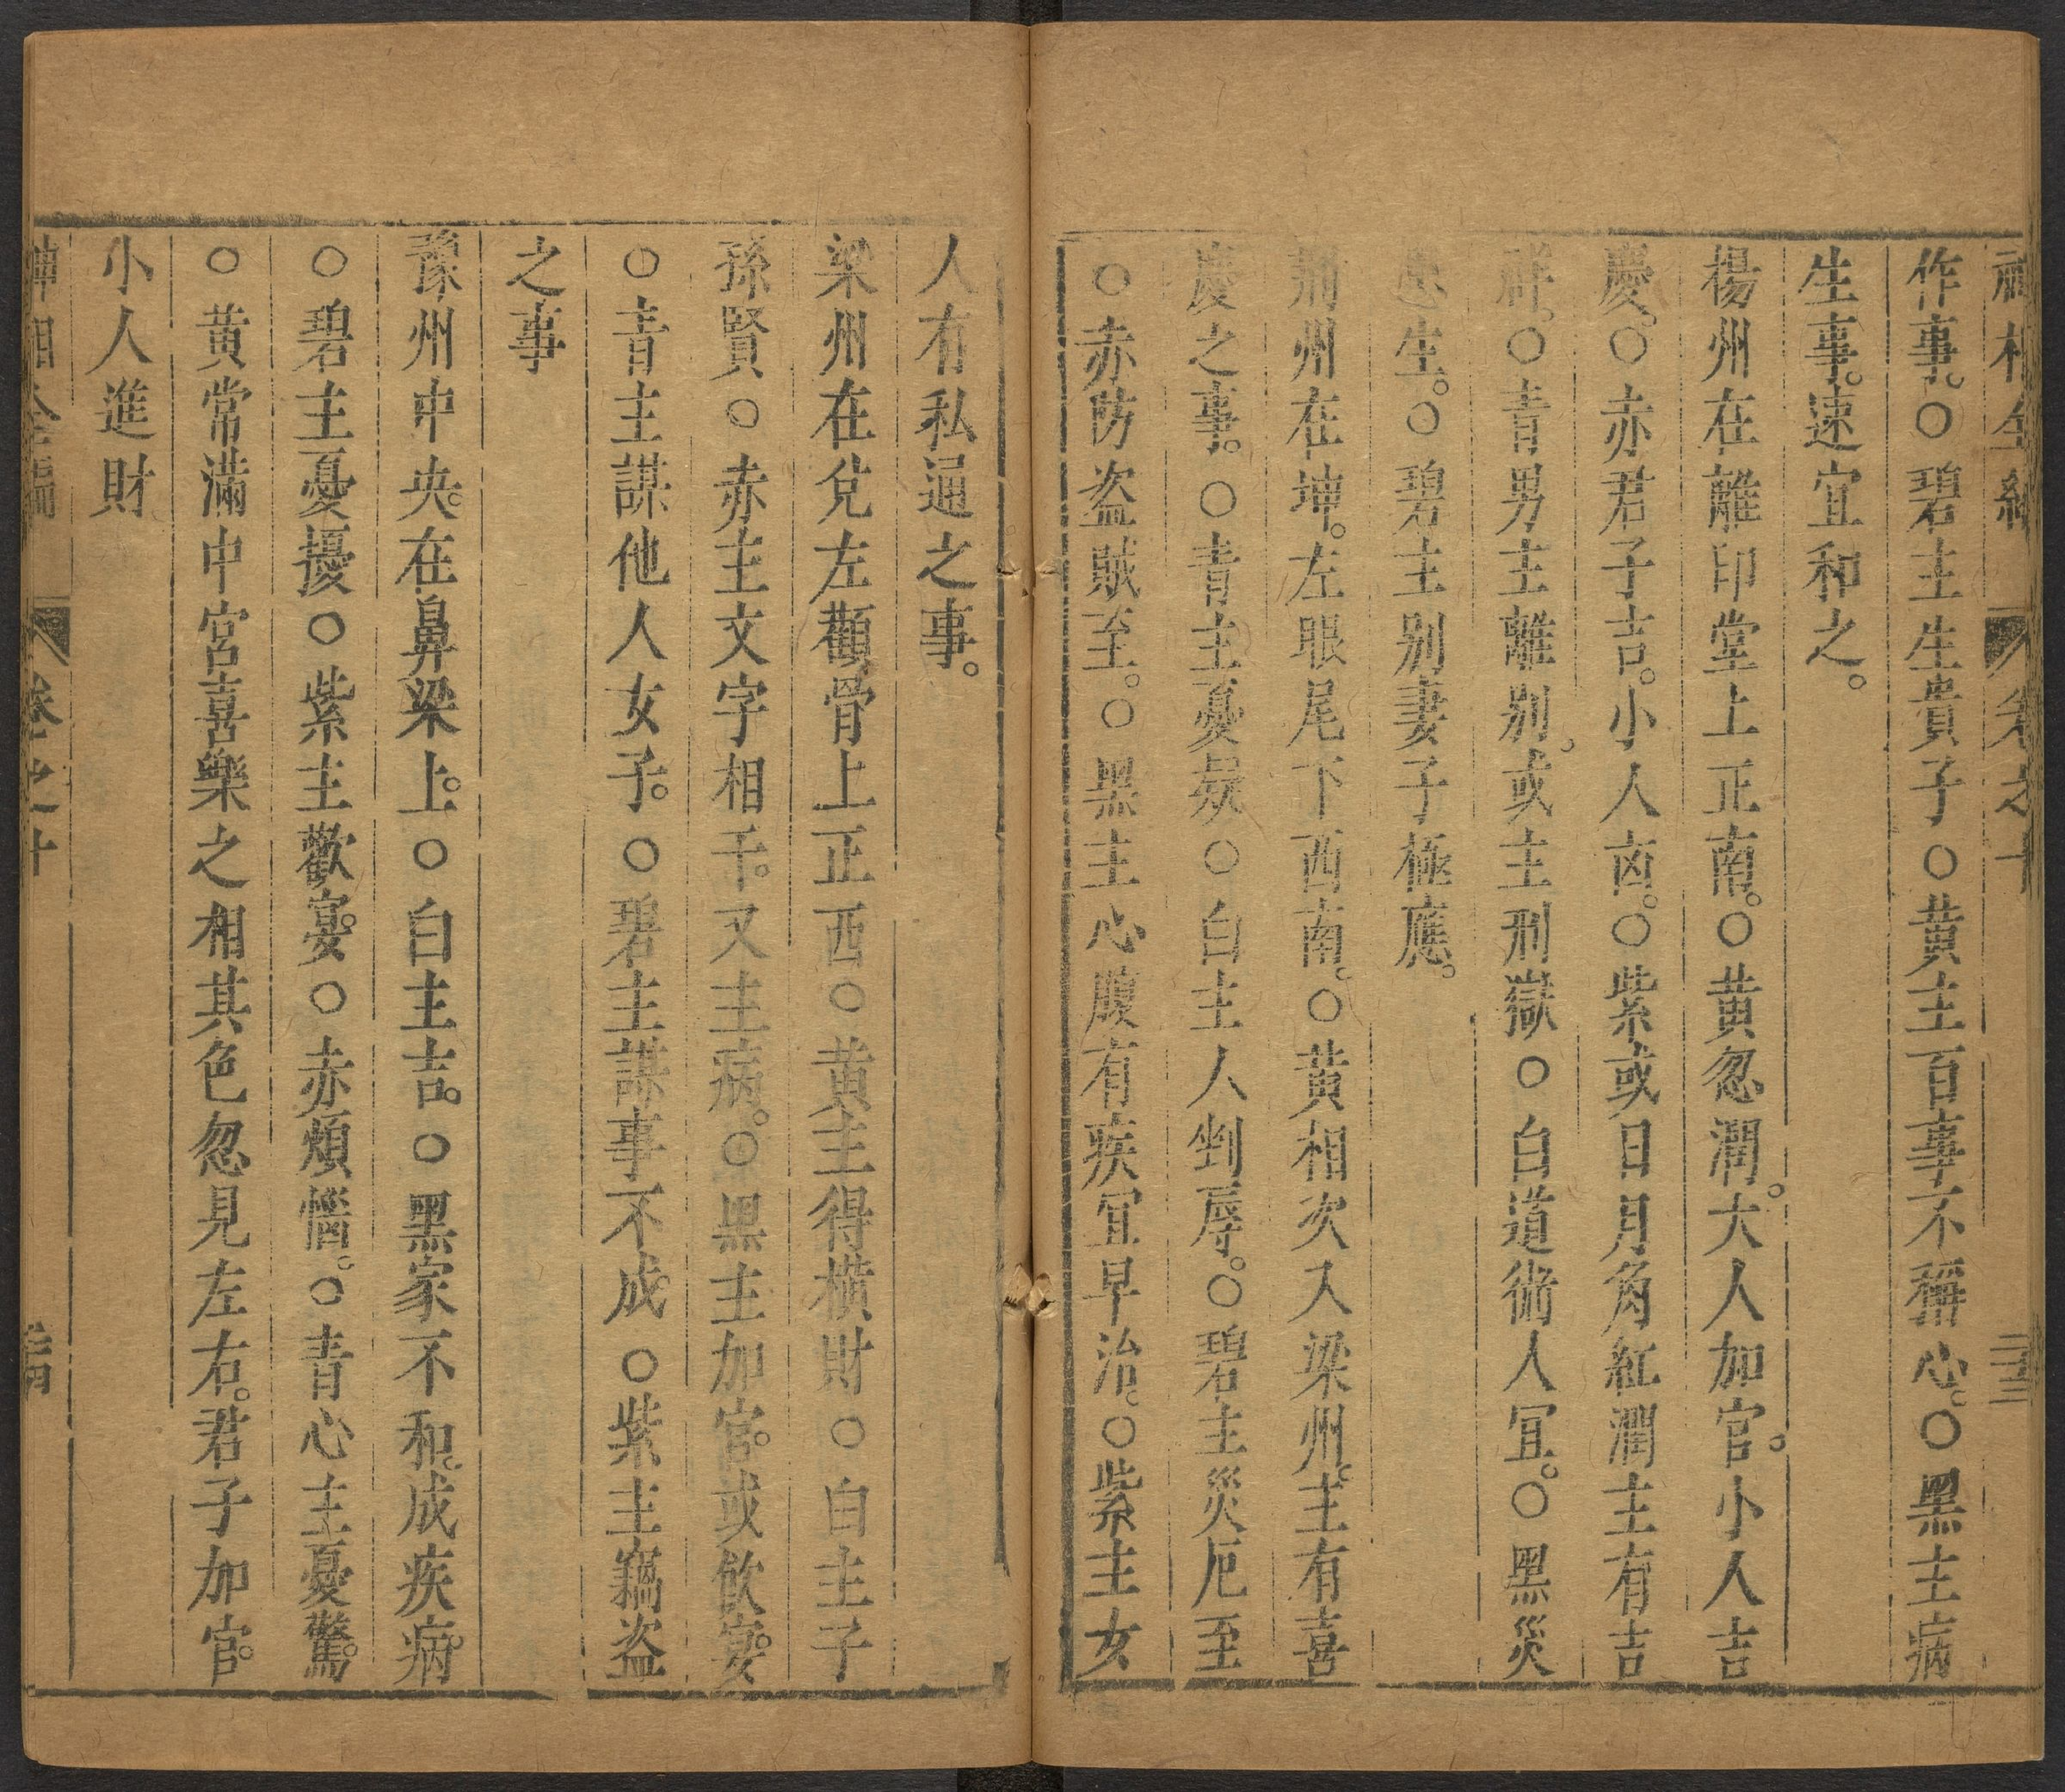 神相全編 卷之十 三十三
作事。○碧主生貴子○黄主百事不稱心。○黑主病
生事。速宜和之。
楊州在離印堂上正南。○黄忽潤。大人加官。小人吉
慶。○赤君子吉。小人凶。○紫或日月角紅潤主有吉
祥。○青男主離别。或主刑獄○白道術人宜。○黑災
患生。○碧主别妻子極應。
荆州在坤。左眼尾下西南。○黄相次入梁州。主有喜
慶之事。○青主憂疑○白主人剉辱。○碧主災厄至
○赤防盗賊至。○黑主心腹有疾宜早治。○紫主女
人有私通之事。
梁州在兌左顴骨上正西○黄主得横財○白主子
孫賢○赤主文字相干。又主病。○黑主加官。或飲宴。
○青主謀他人女子。○碧主謀事不成。○紫主竊盗
之事
豫州中央。在鼻梁上。○白主吉。○黑家不和。成疾病。
○碧主憂擾○紫主歡宴。○赤煩惱。○青心主憂驚。
○黄常滿中宮喜樂之相其色忽見左右。君子加官。
小人進財
神相全編 卷之十